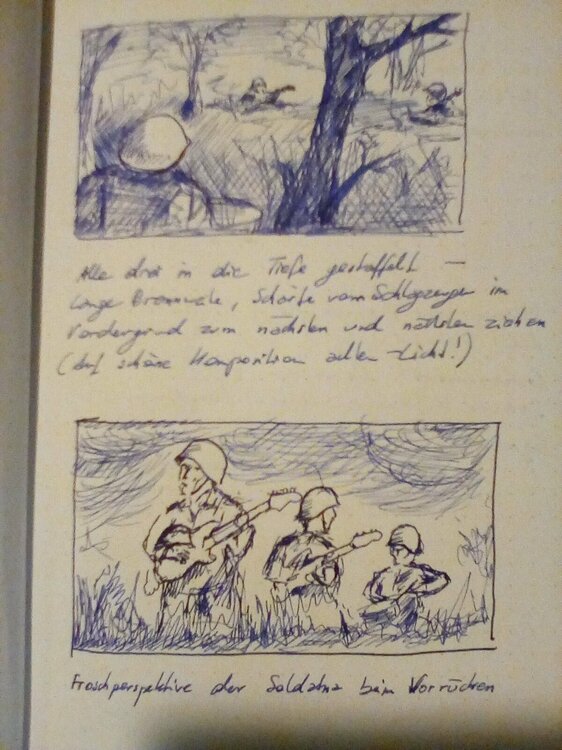 Alle drei in die Tiefe gestaffelt —
Lange Brennweite, Schärfe vom Schlagzeuger im
Vordergrund zum nächsten und nächsten ziehen
(Auf schöne Komposition achten – Licht!)
Froschperspektive der Soldaten beim Vorrücken